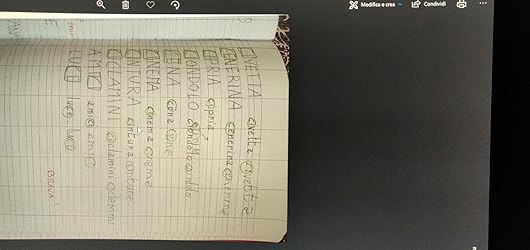 Modifica e crea Condividi
CIVETTA civetta civetta
CENERINA cenerina cenerina
CIPRIA cipria
CIONDOLO ciondolo
CENA cena cene
CINEMA cinema
CINTURA cintura cinture
CICLAMINI ciclamini ciclamini
AMICI amici amici
LUCE luce luci
BRAVA!